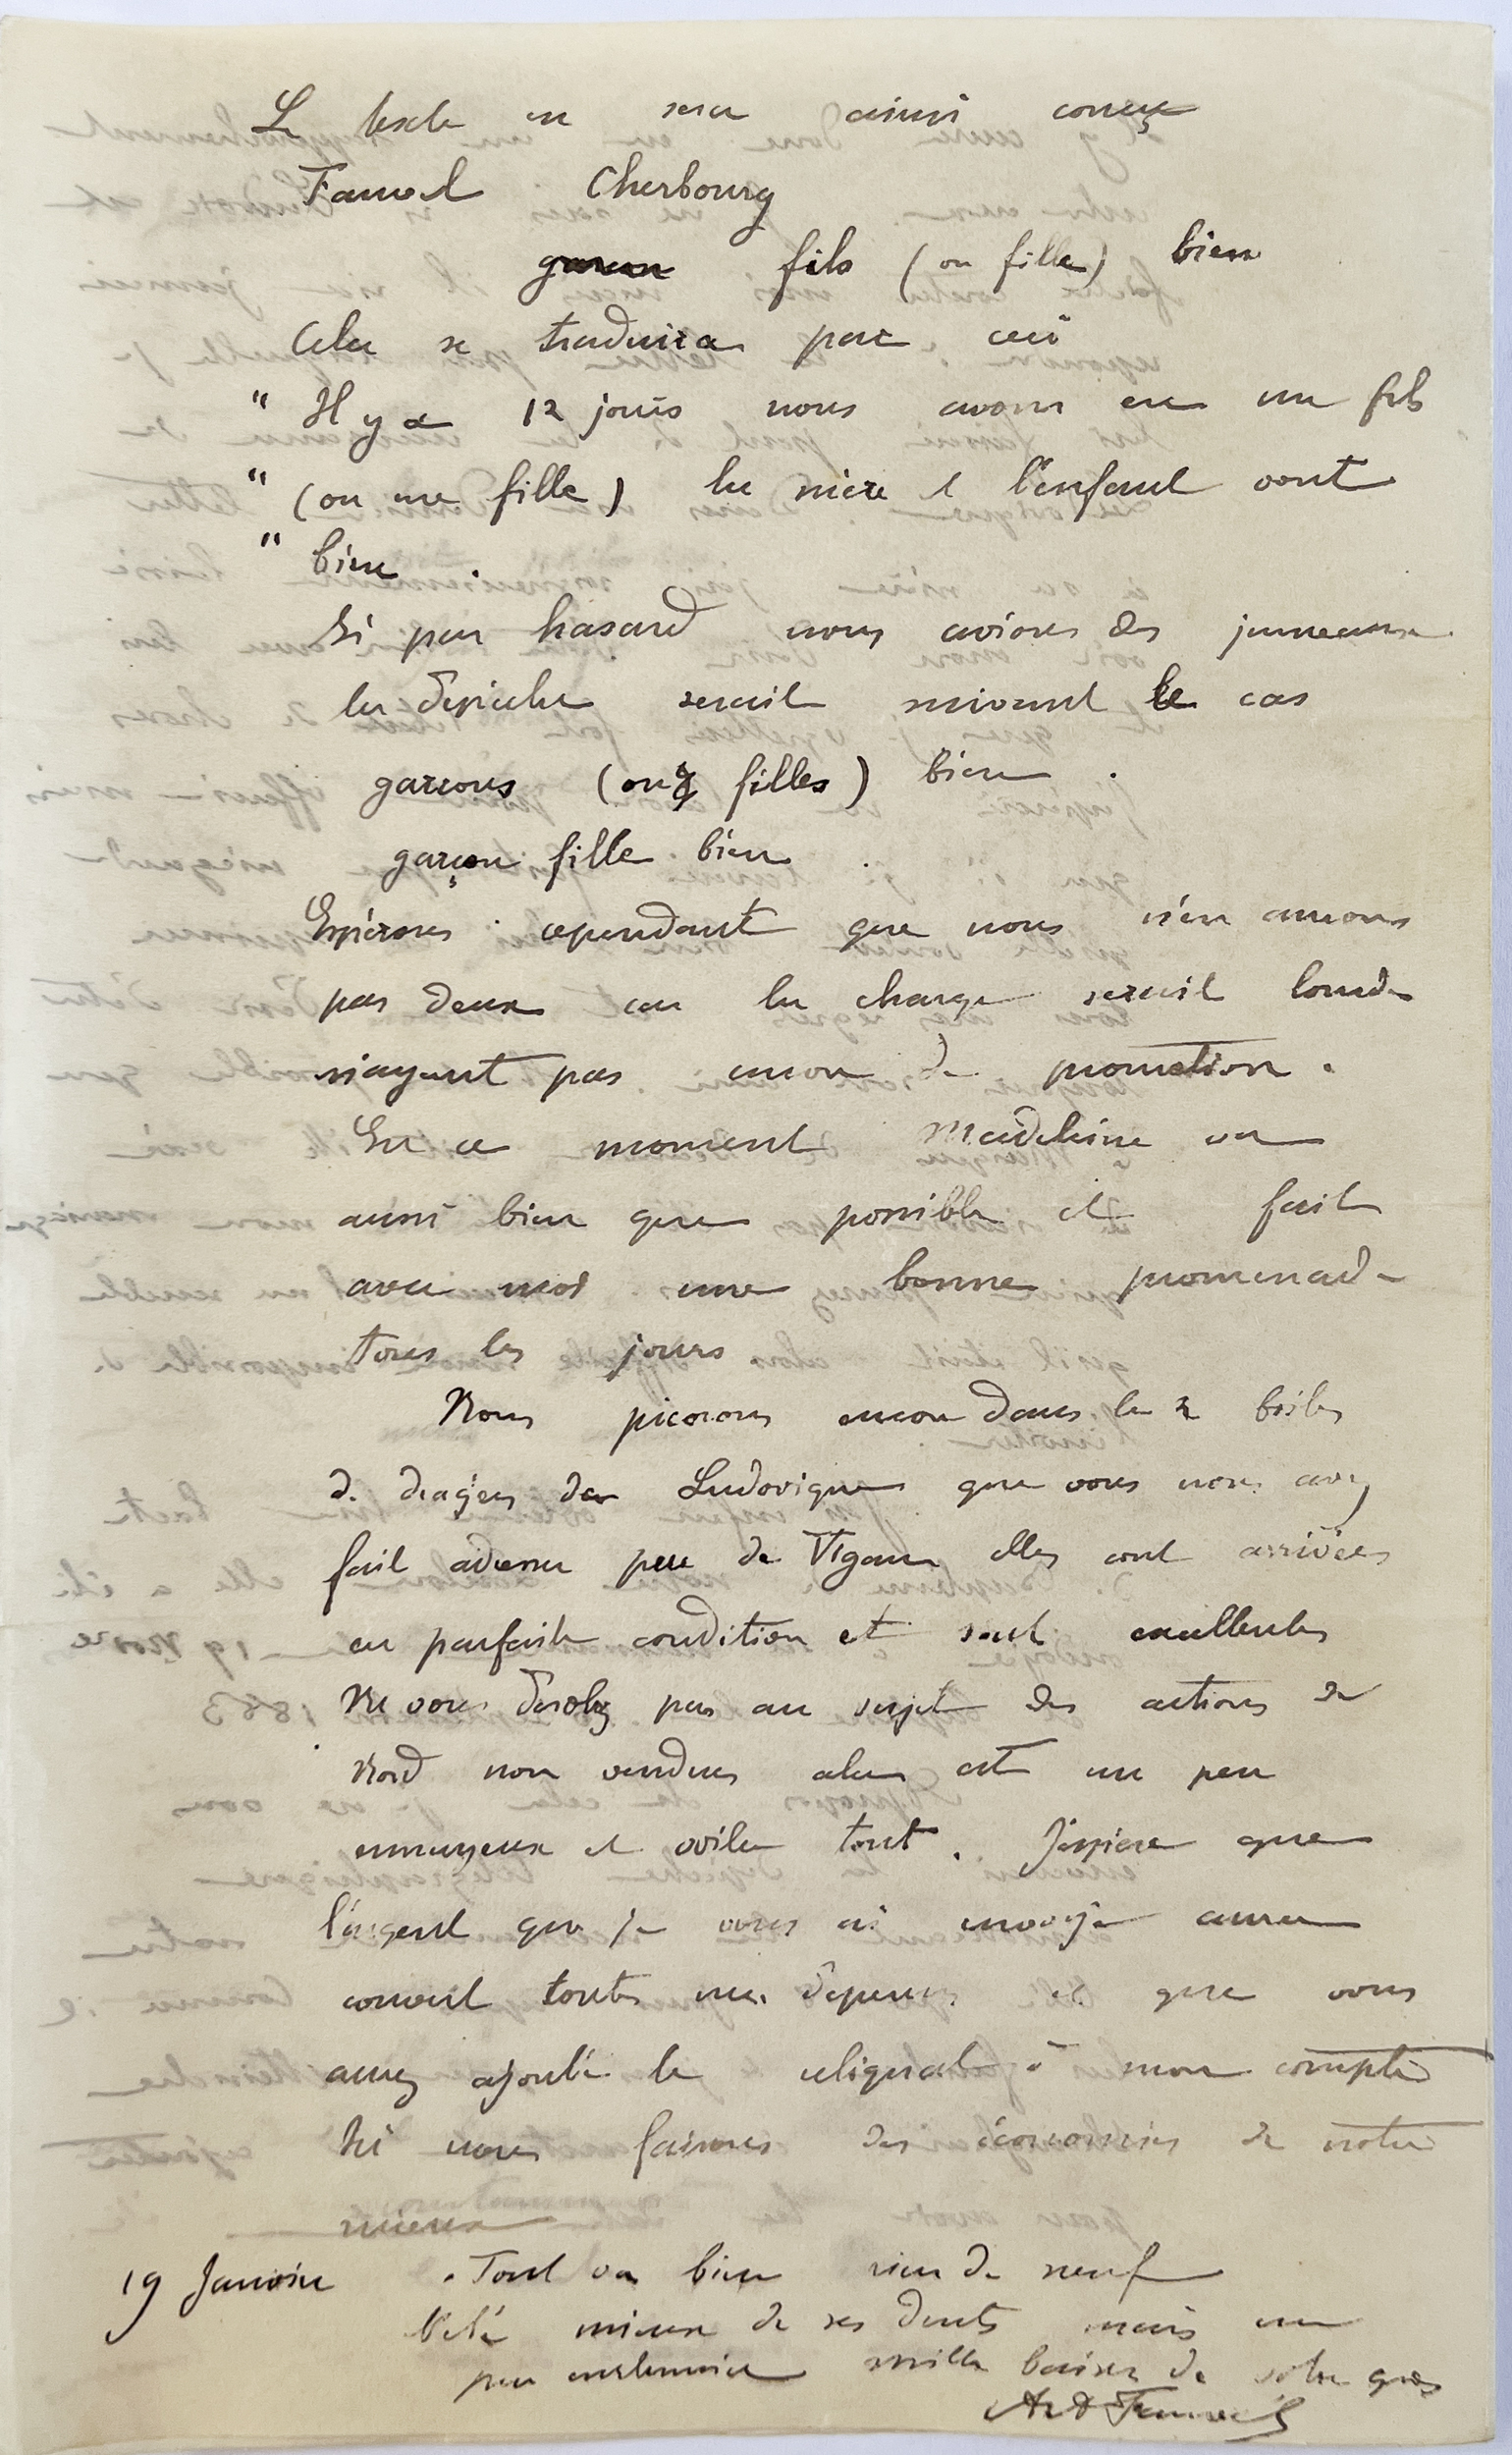 Le texte en sera ainsi conçu
Famel Cherbourg
garcon fils (ou fille) bien
Cela se traduira par ceci
" Il y a 12 jours nous avons eu un fils
" (ou une fille) la mère et l'enfant vont
" bien.
Si par hasard nous avions des jumeaux
la dépêche serait suivant le cas
garcons (ou filles) bien.
garçon fille bien.
Espérons cependant que nous n'en aurons
pas deux car la charge serait lourde
n'ayant pas encore de promotion.
En ce moment Madeleine va
aussi bien que possible et fait
avec moi une bonne promenade
tous les jours
Nous picorons encore dans les 2 boîtes
de dragées de Ludovique que vous nous avez
fait adresser par de Vigan elles sont arrivées
en parfaite condition et sont excellentes
Ne vous désolez pas au sujet des actions du
Nord non vendues cela est un peu
ennuyeux et voilà tout. J'espère que
l'argent que je vous ai envoyé aura
couvert toutes mes dépenses et que vous
aurez ajouté le reliquat à mon compte
Ici nous faisons des économies de notre
mieux
19 Janvier . Tout va bien rien de neuf
Bébé mieux de ses dents mais un
peu enrhumée mille baisers de votre gros